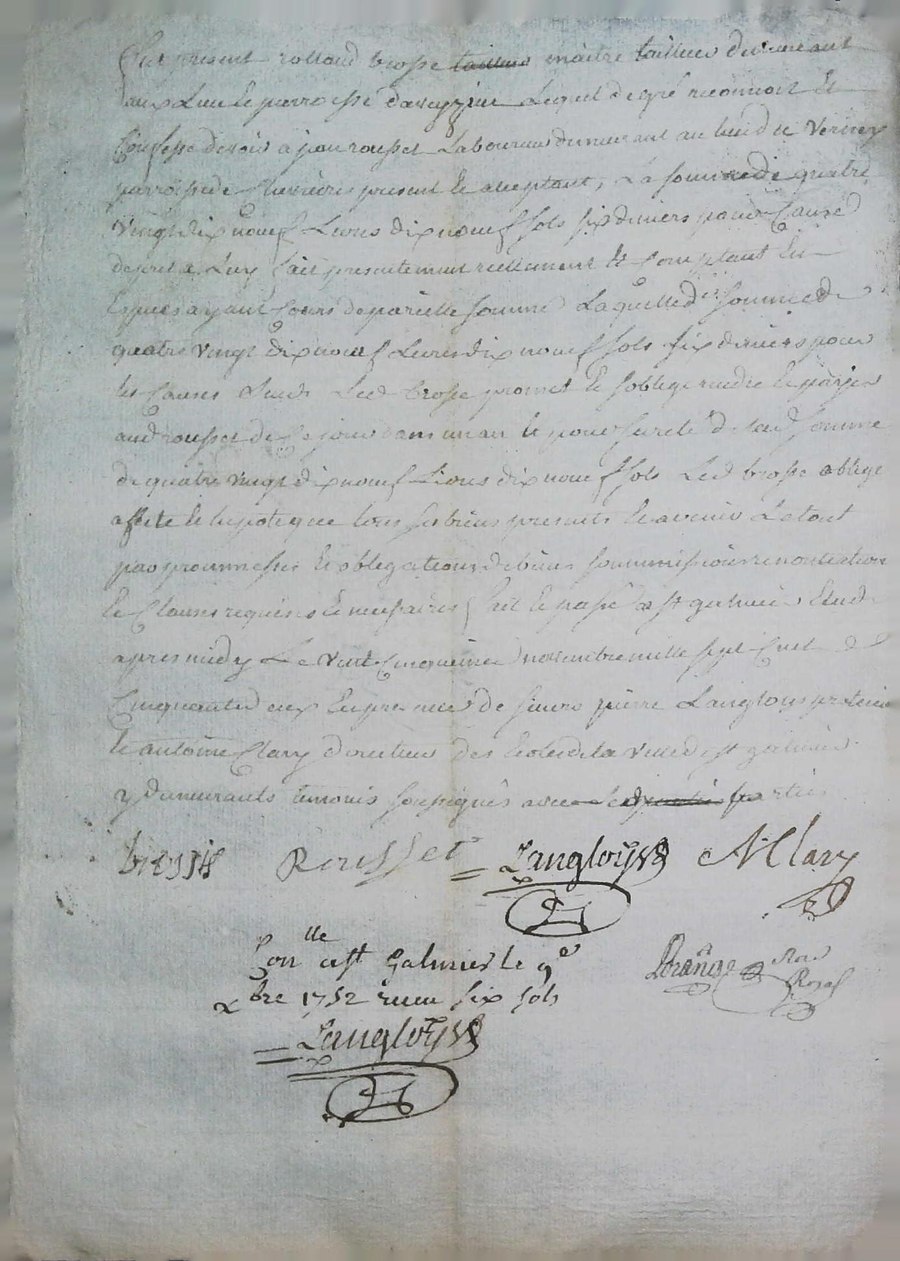 fut present rolland brosse tailleur maitre tailleur demeurant
au lieu et parroisse lequel de gré reconnoit et
confesse devoir a jean rousset laboureur demeurant au lieu de verney
parroisse de chevrieres present et aceptant, la somme de quatre
vingt dix nœuf livres dix nœuf sols six deniers pour cause
de pret a luy fait presentement reellement et comptant en
especes ayant cours de pareille somme laquelle de somme de
quatre vingt dix nœuf livres dix nœuf sols six deniers pour
les causes led brosse promet et soblige rendre et payer
aud rousset de ce jour dans un an et pour sureté de lad somme
de quatre vingt dix nœuf livres dix nœuf sols led brosse oblige
affecte et hipoteque tous ses biens presents et avenir le tout
par proumesses et obligations de biens soummissions renontiation
et clauses requises et necessaires fait et passé a st galmier etude
apres midy le vint cinquieme novembre mille sept cent
cinquante deux en presence de sieurs pierre Langloys praticien
et antoine Clary directeur des de la ville de st galmier
y demeurants temoins soussignés avec les parties parties
brossse Rousset Langloys A Clary
Conlle a st Galmier le 9e
xbre 1752 receu six sols
Langloys
Lorange Nore
Royal